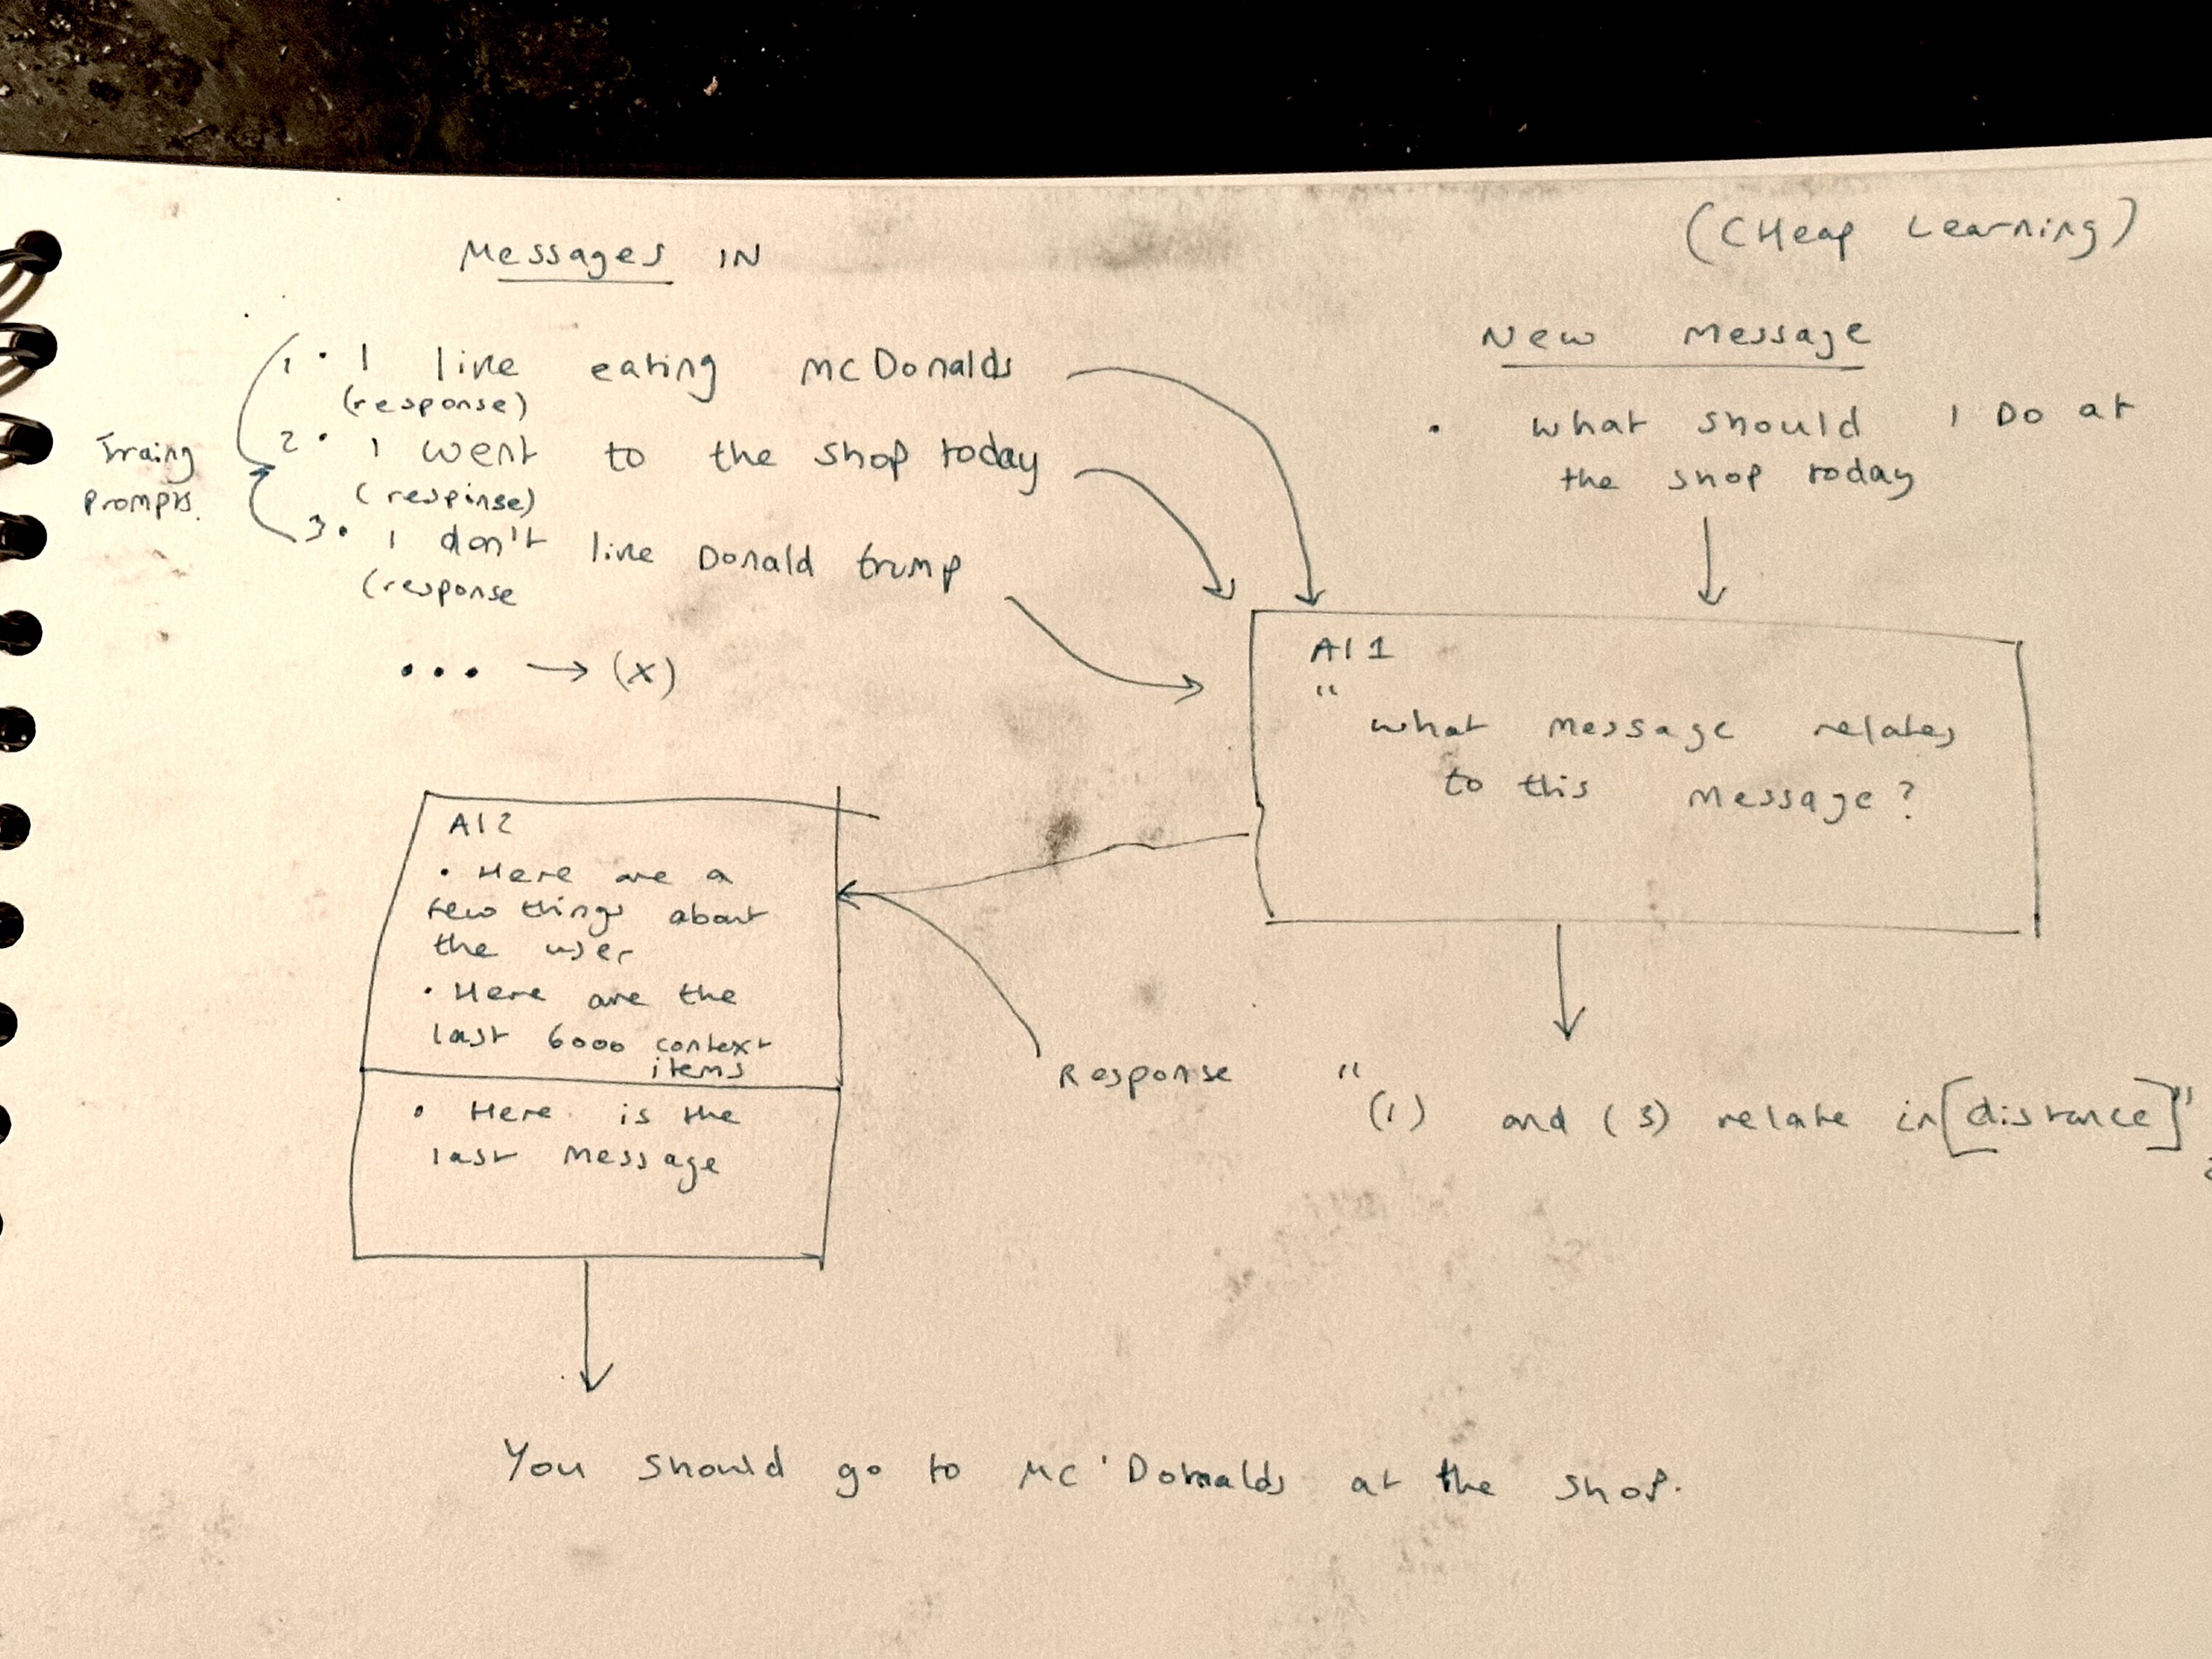 Messages IN
1 • I like eating McDonalds
(response)
2 • I went to the shop today
(respinse)
3 • I don't like Donald trump
(response
• • • → (x)
Traing
Prompts.
(CHeap Learning)
New Message
• what should I Do at
the shop today
AI 1
"
what message relates
to this message?
"
(1) and (3) relate in [distance]"
Response
AI2
• Here are a
few things about
the user
• Here are the
last 6000 context
items
• Here is the
last message
You should go to Mc'Donalds at the shop.